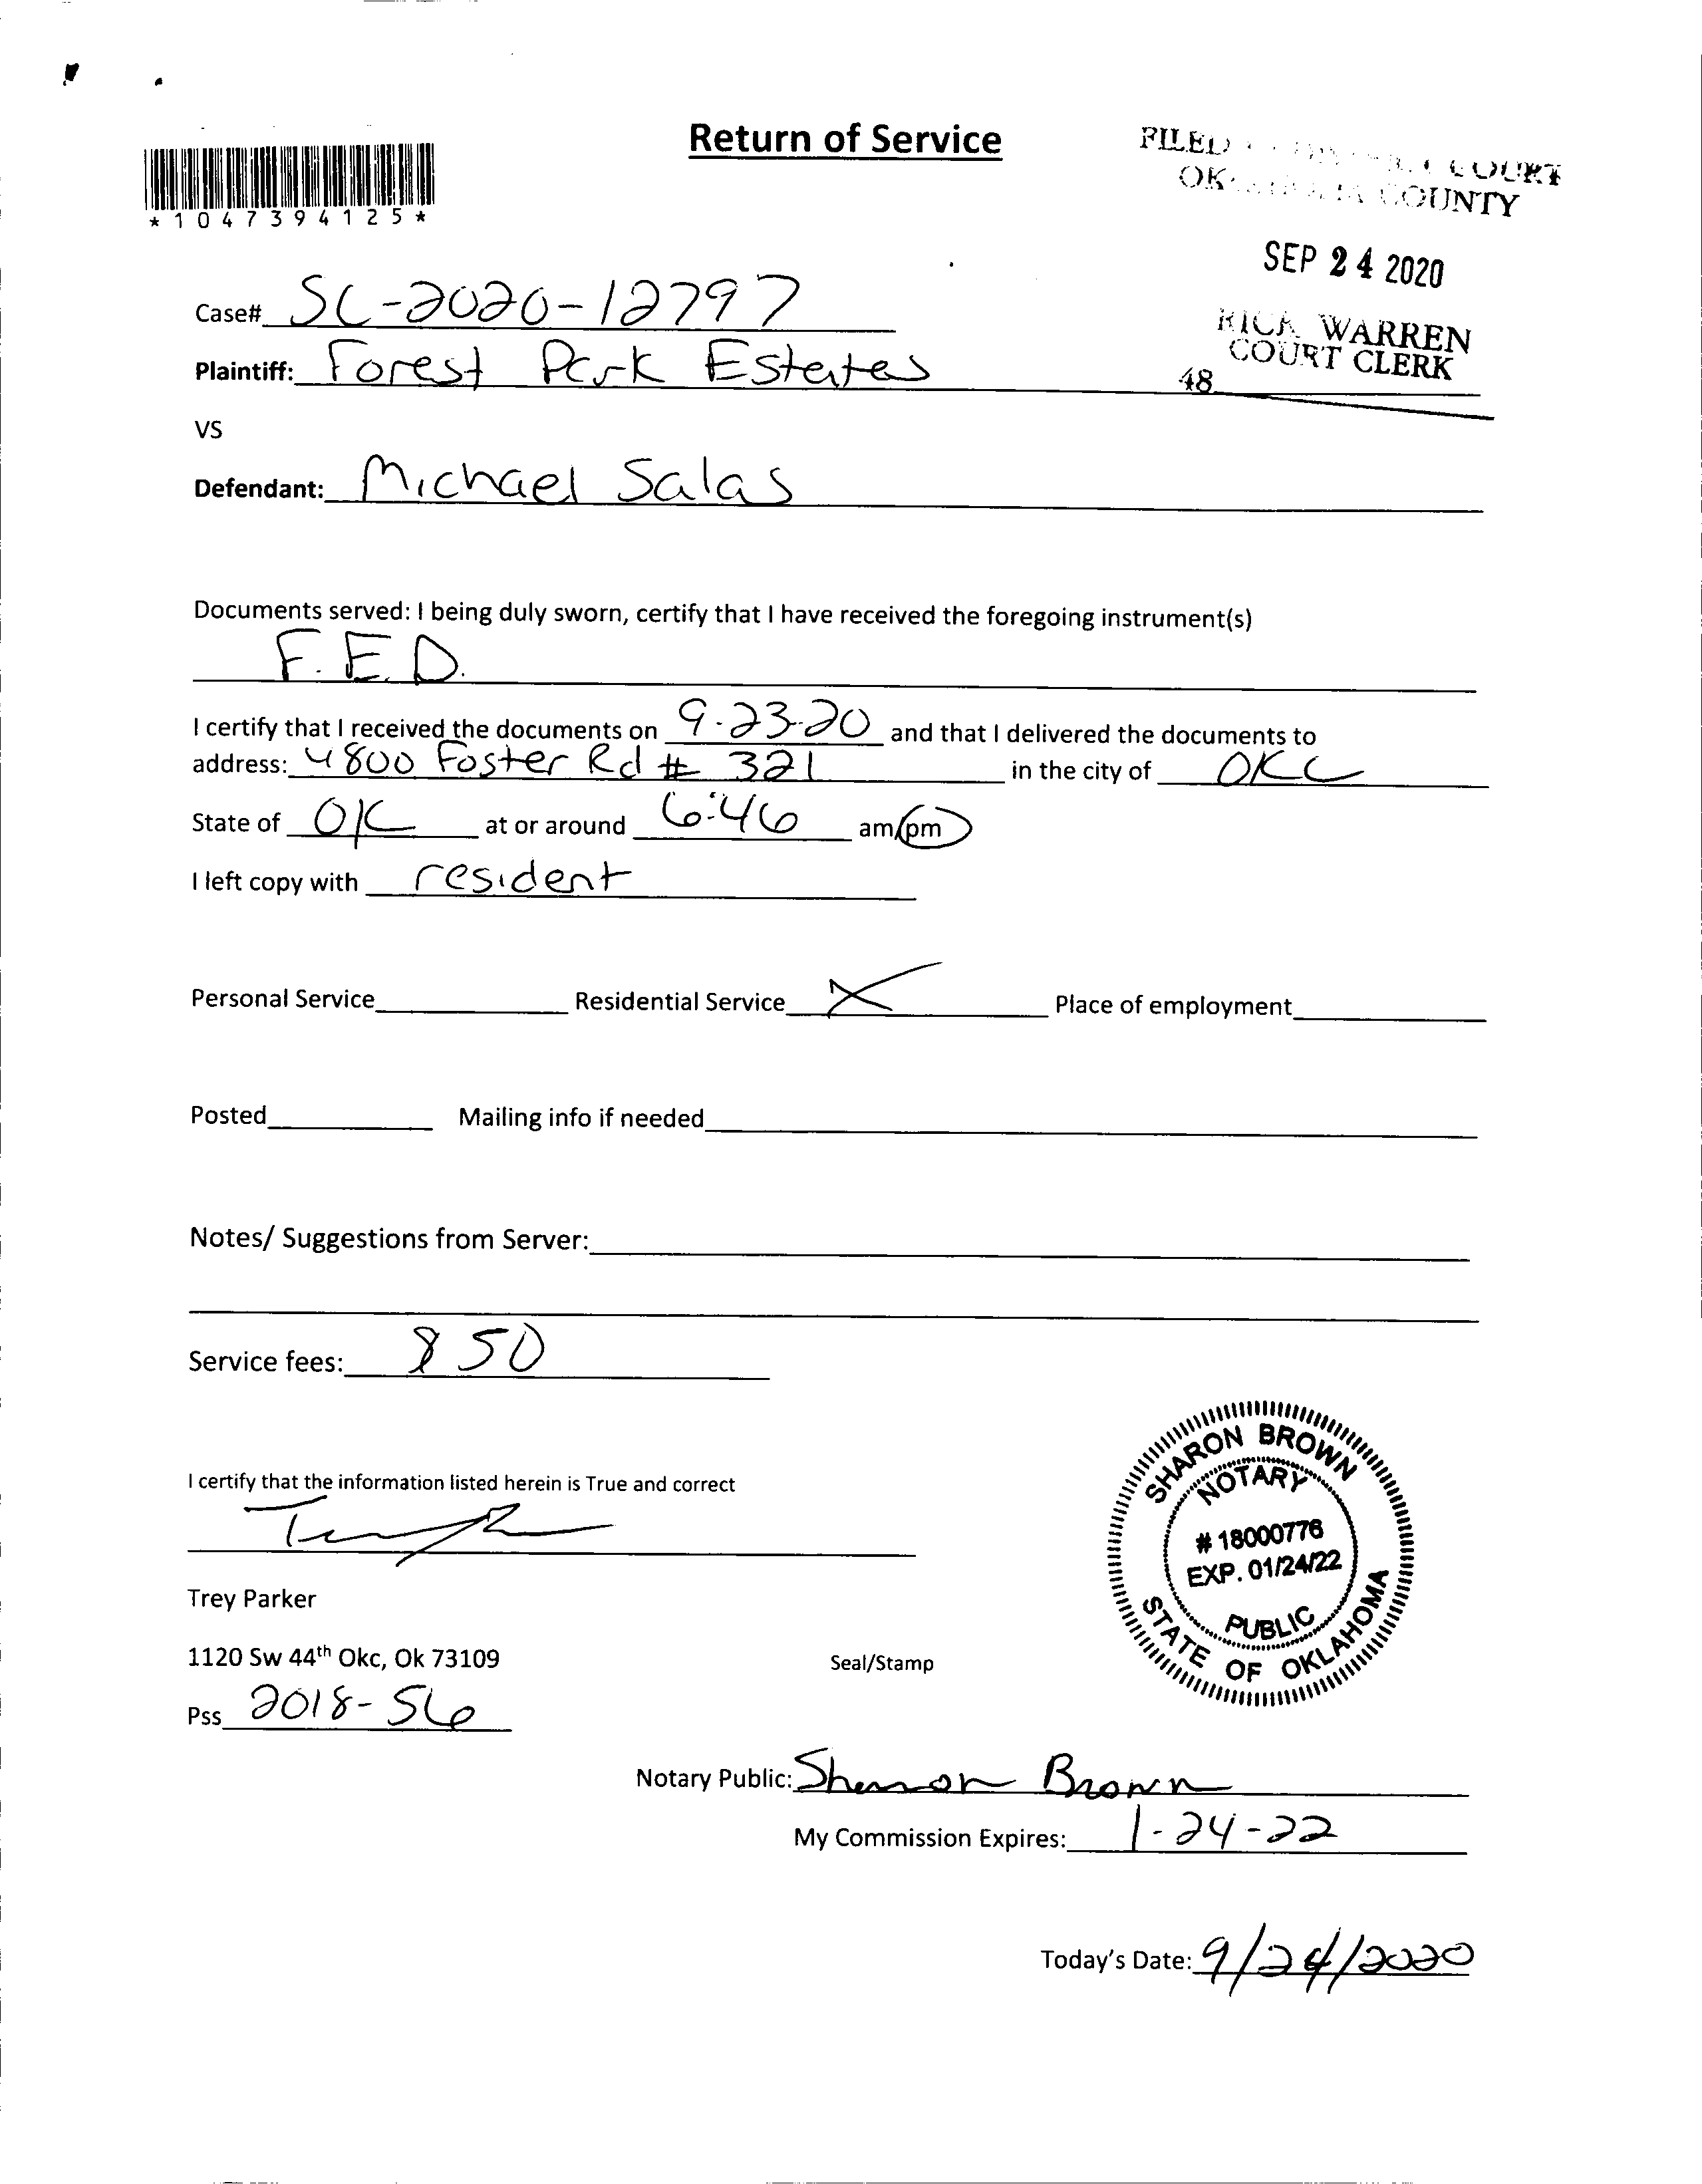 Return of Service
FILED COURT
COUNTY
*1047394125*
SEP 24 2020
RICK WARREN
COURT CLERK
48
Case# SC-2020-12797
Plaintiff: Forest Park Estates
VS
Defendant: Michael Salas
Documents served: I being duly sworn, certify that I have received the foregoing instrument(s)
F.E.D.
I certify that I received the documents on 9-23-20 and that I delivered the documents to
address: 4800 Foster Rd # 321 in the city of OKC
State of OK at or around 6:46 am/pm
I left copy with resident
Personal Service Residential Service X Place of employment
Posted Mailing info if needed
Notes/ Suggestions from Server:
Service fees: $50
I certify that the information listed herein is True and correct
Trey Parker
1120 Sw 44th Okc, Ok 73109
Seal/Stamp
Pss 2018-56
SHARON BROWN
NOTARY
# 18000776
EXP. 01/24/22
PUBLIC
STATE OF OKLAHOMA
Notary Public: Sharon Brown
My Commission Expires: 1-24-22
Today's Date: 9/24/2020